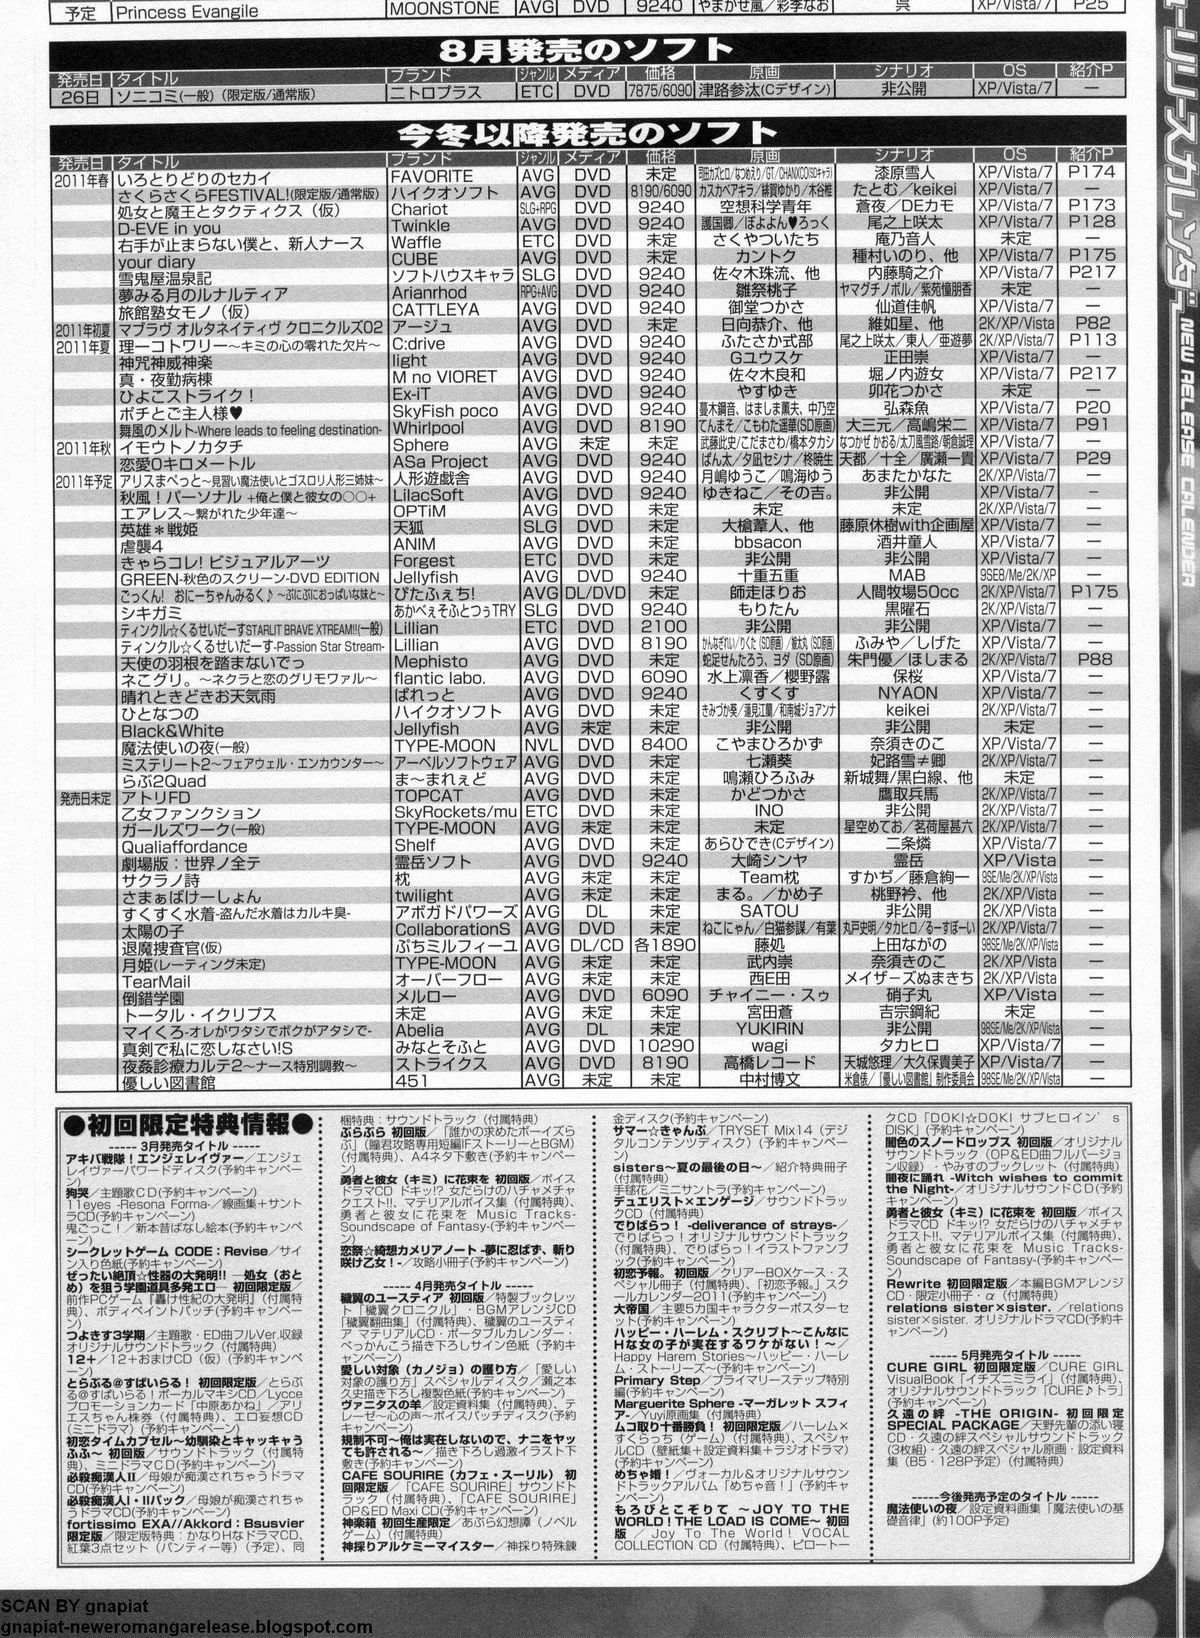 予定 Princess Evangile MOONSTONE AVG DVD 9240 やまかぜ嵐／彩季なお 呉 XP/Vista/7 P25
8月発売のソフト
発売日 タイトル ブランド ジャンル メディア 価格 原画 シナリオ OS 紹介P
26日 ソニコミ(一般)（限定版/通常版） ニトロプラス ETC DVD 7875/6090 津路参汰(Cデザイン) 非公開 XP/Vista/7 ―
今冬以降発売のソフト
発売日 タイトル ブランド ジャンル メディア 価格 原画 シナリオ OS 紹介P
2011年春 いろとりどりのセカイ FAVORITE AVG DVD 未定 漆原雪人 XP/Vista/7 P174
さくらさくらFESTIVAL!(限定版/通常版) ハイクオソフト AVG DVD 8190/6090 カスカベアキラ／緋賀ゆかり／木谷椎 たとむ／keikei XP/Vista/7 ―
処女と魔王とタクティクス（仮） Chariot SLG+RPG DVD 9240 空想科学青年 蒼夜／DEカモ XP/Vista/7 P173
D-EVE in you Twinkle AVG DVD 9240 護国卿／ぽよよん♥ろっく 尾之上咲太 XP/Vista/7 P128
右手が止まらない僕と、新人ナース Waffle ETC DVD 未定 さくやついたち 庵乃音人 未定 ―
your diary CUBE AVG DVD 未定 カントク 種村いのり、他 XP/Vista/7 P175
雪鬼屋温泉記 ソフトハウスキャラ SLG DVD 9240 佐々木珠流、他 内藤騎之介 XP/Vista/7 P217
夢みる月のルナルティア Arianrhod RPG+AVG DVD 9240 雛祭桃子 ヤマグチノボル／紫苑憧朋香 未定 ―
旅館塾女モノ（仮） CATTLEYA AVG DVD 9240 御堂つかさ 仙道佳帆 XP/Vista/7 ―
2011年初夏 マブラヴ オルタネイティヴ クロニクルズ02 アージュ AVG DVD 未定 日向恭介、他 維如星、他 2K/XP/Vista P82
2011年夏 理―コトワリ―～キミの心の零れた欠片～ C:drive AVG DVD 未定 ふたさか式部 尾之上咲太／東人／亜遊夢 2K/XP/Vista/7 P113
神咒神威神楽 light AVG DVD 9240 Gユウスケ 正田崇 XP/Vista/7 ―
真・夜勤病棟 M no VIORET AVG DVD 9240 佐々木良和 堀ノ内遊女 XP/Vista/7 P217
ひよこストライク！ Ex-iT AVG DVD 9240 やすゆき 卯花つかさ 未定 ―
ポチとご主人様♥ SkyFish poco AVG DVD 9240 蔓木鋼音、はましま薫夫、中乃空 弘森魚 XP/Vista/7 P20
舞風のメルト-Where leads to feeling destination- Whirlpool AVG DVD 8190 てんまそ／こもわた遥華(SD原画) 大三元／高嶋栄二 XP/Vista/7 P91
2011年秋 イモウトノカタチ Sphere AVG 未定 未定 武藤此史／こだまさわ／橋本タカシ なつかぜ かおる／太刀風雪路／朝倉誠理 XP/Vista/7 ―
恋愛0キロメートル ASa Project AVG DVD 9240 ぱん太／夕凪セシナ／柊暁生 天都／十全／廣瀬一貴 XP/Vista/7 P29
2011年予定 アリスまぺっと～見習い魔法使いとゴスロリ人形三姉妹～ 人形遊戯舎 AVG DVD 9240 月嶋ゆうこ／鳴海ゆう あまたかなた XP/Vista/7 ―
秋風！パーソナル +俺と僕と彼女の○○+ LilacSoft AVG DVD 9240 ゆきねこ／その吉。 非公開 XP/Vista/7 ―
エアレス～繋がれた少年達～ OPTiM AVG DVD 未定 未定 未定 XP/Vista/7 ―
英雄＊戦姫 天狐 SLG DVD 未定 大槍葦人、他 藤原休樹with企画屋 XP/Vista/7 ―
虐襲4 ANIM AVG DVD 未定 bbsacon 酒井童人 XP/Vista/7 ―
きゃらコレ! ビジュアルアーツ Forgest ETC DVD 未定 非公開 非公開 XP/Vista/7 ―
GREEN-秋色のスクリーン-DVD EDITION Jellyfish AVG DVD 9240 十重五重 MAB ―
ごっくん! おにーちゃんみるく♪～ぷにぷにおっぱいな妹と～ ぴたふぇち! AVG DL/DVD 未定 師走ほりお 人間牧場50cc 2K/XP/Vista/7 P175
シキガミ あかべぇそふとつぅTRY SLG DVD 9240 もりたん 黒曜石 2K/XP/Vista/7 ―
ティンクル☆くるせいだーすSTARLIT BRAVE XTREAM!!(一般) Lillian ETC DVD 2100 非公開 非公開 XP/Vista/7 ―
ティンクル☆くるせいだーす-Passion Star Stream- Lillian AVG DVD 8190 かんなぎれい／りくた（SD原画）／綾太丸（SD原画） ふみや／しげた XP/Vista/7 ―
天使の羽根を踏まないでっ Mephisto AVG DVD 未定 蛇足せんたろう、ヨダ（SD原画） 朱門優／ほしまる 2K/XP/Vista/7 P88
ネこグリ。～ネクラと恋のグリモワァル～ flantic labo. AVG DVD 6090 水上凛香／櫻野露 保桜 XP/Vista/7 ―
晴れときどきお天気雨 ぱれっと AVG DVD 9240 くすくす NYAON XP/Vista/7 ―
ひとなつの ハイクオソフト AVG DVD 未定 きみづか葵／蓮見江蘭／和南城ジョアンナ keikei 2K/XP/Vista/7 ―
Black&White Jellyfish AVG 未定 未定 非公開 非公開 未定 ―
魔法使いの夜(一般) TYPE-MOON NVL DVD 8400 こやまひろかず 奈須きのこ XP/Vista/7 ―
ミステリート2～フェアウェル・エンカウンター～ アーベルソフトウェア AVG DVD 未定 七瀬葵 妃路雪≠卿 2K/XP/Vista/7 ―
らぶ2Quad ま～まれぇど AVG DVD 未定 鳴瀬ひろふみ 新城舞/黒白線、他 未定 ―
発売日未定 アトリFD TOPCAT AVG DVD 未定 かどつかさ 鷹取兵馬 2K/XP/Vista/7 ―
乙女ファンクション SkyRockets/mu ETC DVD 未定 INO 非公開 2K/XP/Vista/7 ―
ガールズワーク(一般) TYPE-MOON AVG 未定 未定 未定 星空めてお／茗荷屋甚六 2K/XP/Vista/7 ―
Qualiaffordance Shelf AVG DVD 未定 あらひでき(Cデザイン) 二条燐 XP/Vista/7 ―
劇場版：世界ノ全テ 霊岳ソフト AVG DVD 9240 大崎シンヤ 霊岳 XP/Vista ―
サクラノ詩 枕 AVG DVD 未定 Team枕 すかぢ／藤倉絢一 ―
さまぁばけーしょん twilight AVG DVD 未定 まる。／かめ子 桃野衿、他 2K/XP/Vista ―
すくすく水着-盗んだ水着はカルキ臭- アボガドパワーズ AVG DL 未定 SATOU 非公開 2K/XP/Vista ―
太陽の子 CollaborationS AVG DVD 未定 ねこにゃん／白猫参謀／有葉 丸戸史明／タカヒロ／るーすぼーい 2K/XP/Vista ―
退魔捜査官(仮) ぷちミルフィーユ AVG DL/CD 各1890 藤処 上田ながの 98SE/Me/2K/XP/Vista ―
月姫(レーティング未定) TYPE-MOON AVG 未定 未定 武内崇 奈須きのこ 2K/XP/Vista ―
TearMail オーバーフロー AVG DVD 未定 西E田 メイザーズぬまきち 2K/XP/Vista ―
倒錯学園 メルロー AVG DVD 6090 チャイニー・スゥ 硝子丸 XP/Vista ―
トータル・イクリプス 未定 AVG DVD 未定 宮田蒼 吉宗鋼紀 未定 ―
マイくろ-オレがワタシでボクがアタシで- Abelia AVG DL 未定 YUKIRIN 非公開 98SE/Me/2K/XP/Vista ―
真剣で私に恋しなさい!S みなとそふと AVG DVD 10290 wagi タカヒロ XP/Vista/7 ―
夜姦診療カルテ2～ナース特別調教～ ストライクス AVG DVD 8190 高橋レコード 天城悠理／大久保貴美子 XP/Vista/7 ―
優しい図書館 451 AVG 未定 未定 中村博文 米倉俵／『優しい図書館』制作委員会 98SE/Me/2K/XP/Vista ―
リリースカレンダー NEW RELEASE CALENDER
●初回限定特典情報●
----- 3月発売タイトル -----
アキバ戦隊！エンジェレイヴァー／エンジェ
レイヴァーパワードディスク(予約キャンペー
ン)
狗哭／主題歌CD(予約キャンペーン)
11eyes -Resona Forma-／線画集＋サント
ラCD(予約キャンペーン)
鬼ごっこ！／新本昔ばなし絵本(予約キャンペ
ーン)
シークレットゲーム CODE：Revise／サイ
ン入り色紙(予約キャンペーン)
ぜったい絶頂☆性器の大発明!! ―処女（おと
め）を狙う学園道具多発エロ― 初回限定版／
前作PCゲーム『轟け性紀の大発明』（付属特
典）、ボディペイントパッチ(予約キャンペー
ン)
つよきす3学期／主題歌・ED曲フルVer.収録
オリジナルサウンドトラック（付属特典）
12+／12+おまけCD（仮）（予約キャンペー
ン)
とらぶる@すぱいらる！ 初回限定版／とらぶ
る@すぱいらる！ボーカルマキシCD／Lycce
プロモーションカード「中原あかね」／アリ
エスちゃん株券（付属特典）、エロ妄想CD
(ミニドラマ)（予約キャンペーン）
初恋タイムカプセル～幼馴染とキャッキャう
ふふ～ 初回版／サウンドトラック（付属特
典）、ミニドラマCD(予約キャンペーン)
必殺痴漢人Ⅱ／母娘が痴漢されちゃうドラマ
CD(予約キャンペーン)
必殺痴漢人Ⅰ・Ⅱパック／母娘が痴漢されちゃ
うドラマCD(予約キャンペーン)
fortissimo EXA//Akkord：Bsusvier
限定版／限定版特典：かなりHなドラマCD、
紅葉3点セット（パンティー等）（予定）、同
梱特典：サウンドトラック（付属特典）
ぶらぶら 初回版／「誰かの求めたボーイズら
ぶ」（瞳君攻略専用短編IFストーリーとBGM）
（付属特典）、A4ネタ下敷き(予約キャンペー
ン)
勇者と彼女（キミ）に花束を 初回版／ボイス
ドラマCD ドキッ!? 女だらけのハチャメチャ
クエスト!!、マテリアルボイス集（付属特典）、
勇者と彼女に花束を Music Tracks-
Soundscape of Fantasy-(予約キャンペー
ン)
恋祭☆綺想カメリアノート -夢に忍ばず、斬り
咲け乙女！-／攻略小冊子(予約キャンペーン)
----- 4月発売タイトル -----
穢翼のユースティア 初回版／特製ブックレッ
ト「穢翼クロニクル」・BGMアレンジCD
「穢翼翻曲集」（付属特典）、穢翼のユースティ
ア マテリアルCD・ポータブルカレンダー・
べっかんこう描き下ろしサイン色紙（予約キ
ャンペーン）
愛しい対象（カノジョ）の護り方／「愛しい
対象の護り方」スペシャルディスク／瀬之本
久史描き下ろし複製色紙(予約キャンペーン)
ヴァニタスの羊／設定資料集（付属特典）、テ
レーゼ～心の声～ボイスパッチディスク(予約
キャンペーン)
規制不可～俺は実在しないので、ナニをヤッ
ても許される～／描き下ろし過激イラスト下
敷き(予約キャンペーン)
CAFE SOURIRE（カフェ・スーリル） 初
回限定版／「CAFE SOURIRE」サウンドト
ラック（付属特典）、「CAFE SOURIRE」
OP&ED Maxi CD(予約キャンペーン)
神楽箱 初回生産限定／あぶら幻想譚（ノベル
ゲーム）（付属特典）
神採りアルケミーマイスター／神採り特殊錬
金ディスク(予約キャンペーン)
サマー☆きゃんぷ／TRYSET Mix14（デジ
タルコンテンツディスク）（予約キャンペー
ン)
sisters～夏の最後の日～／紹介特典冊子
（付属特典）
手毬花／ミニサントラ(予約キャンペーン)
デュエリスト×エンゲージ／サウンドトラッ
クCD（付属特典）
でりばらっ！ -deliverance of strays-／
でりばらっ！オリジナルサウンドトラック
（付属特典）、でりばらっ！イラストファンブ
ック(予約キャンペーン)
初恋予報。 初回版／クリアーBOXケース・ス
ペシャル冊子（付属特典）、「初恋予報。」スク
ールカレンダー2011(予約キャンペーン)
大帝国／主要5カ国キャラクターポスターセ
ット(予約キャンペーン)
ハッピー・ハーレム・スクリプト～こんなに
Hな女の子が実在するワケがない！～／
Happy Harem Stories～ハッピー・ハーレ
ム・ストーリーズ～(予約キャンペーン)
Primary Step／プライマリーステップ特別
編(予約キャンペーン)
Marguerite Sphere -マーガレット スフィ
ア-／Yuyi原画集（付属特典）
ムコ取り十番勝負！ 初回限定版／ハーレム×
すくらっち（ゲーム）（付属特典）、スペシャ
ルCD（壁紙集＋設定資料集＋ラジオドラマ）
(予約キャンペーン)
めちゃ婚！／ヴォーカル&オリジナルサウン
ドトラックアルバム「めちゃ音！」(予約キャン
ペーン)
もろびとこぞりて ～JOY TO THE
WORLD！THE LOAD IS COME～ 初回
版／Joy To The World！VOCAL
COLLECTION CD（付属特典）、ピロートー
クCD「DOKI☆DOKI サブヒロイン's
DISK」(予約キャンペーン)
闇色のスノードロップス 初回版／オリジナル
サウンドトラック（OP&ED曲フルバージョ
ン収録）・やみすのブックレット（付属特典）
闇夜に踊れ -Witch wishes to commit
the Night-／オリジナルサウンドCD(予約キ
ャンペーン)
勇者と彼女（キミ）に花束を 初回版／ボイス
ドラマCD ドキッ!? 女だらけのハチャメチャ
クエスト!!、マテリアルボイス集（付属特典）、
勇者と彼女に花束を Music Tracks-
Soundscape of Fantasy-(予約キャンペー
ン)
Rewrite 初回限定版／本編BGMアレンジ
CD・限定小冊子・α（付属特典）
relations sister×sister.／relations
sister×sister. オリジナルドラマCD(予約キ
ャンペーン)
----- 5月発売タイトル -----
CURE GIRL 初回限定版／CURE GIRL
VisualBook「イチズニミライ」（付属特典）、
オリジナルサウンドトラック「CURE♪トラ」
(予約キャンペーン)
久遠の絆 -THE ORIGIN- 初回限定
SPECIAL PACKAGE／天野先輩の添い寝
CD・久遠の絆スペシャルサウンドトラック
(3枚組)・久遠の絆スペシャル原画・設定資料
集（B5・128P予定）（付属特典）
-----今後発売予定のタイトル -----
魔法使いの夜／設定資料画集「魔法使いの基
礎音律」(約100P予定)
SCAN BY gnapiat
gnapiat-neweromangarelease.blogspot.com